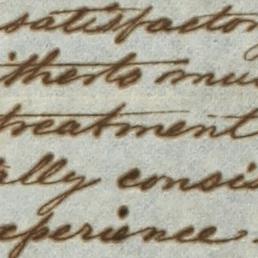 satisfactory
itherto muc
treatment
ally consis
xperience.